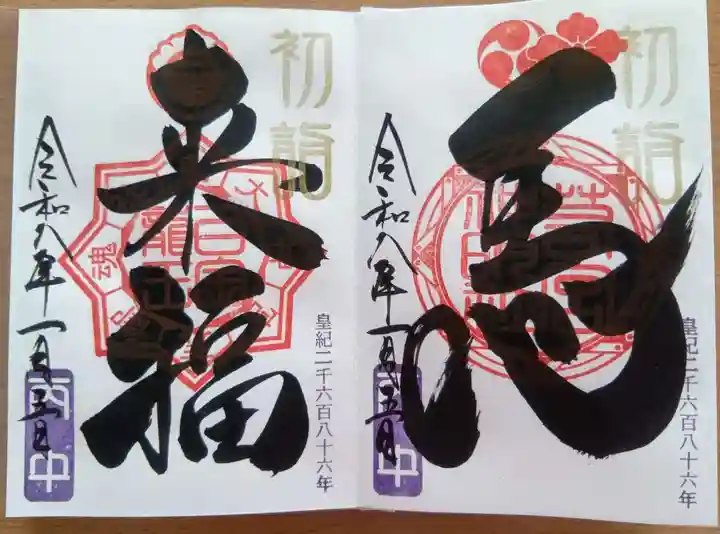 初詣
馬
令和八年一月五日
皇紀二千六百八十六年
初詣
来福
令和八年一月五日
丙午
皇紀二千六百八十六年
魂